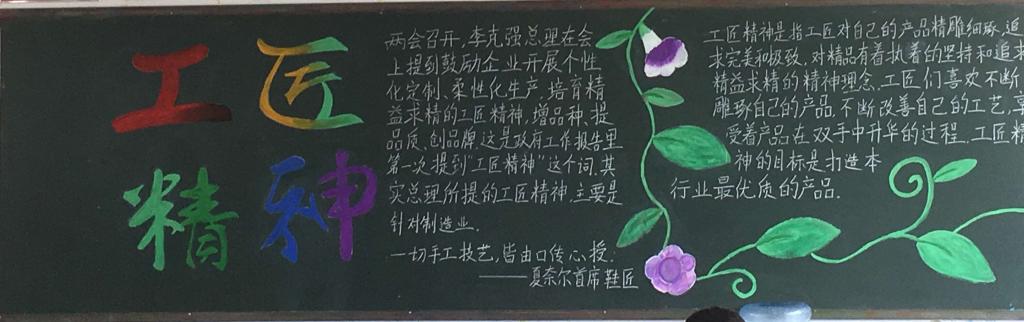 工匠
精神
两会召开,李克强总理在会
上提到鼓励企业开展个性
化定制、柔性化生产,培育精
益求精的工匠精神,增品种、提
品质、创品牌,这是政府工作报告里
第一次提到"工匠精神"这个词,其
实总理所提的工匠精神,主要是
针对制造业.
一切手工技艺,皆由口传心授.
——夏奈尔首席鞋匠
工匠精神是指工匠对自己的产品精雕细琢,追
求完美和极致,对精品有着执着的坚持和追求
精益求精的精神理念.工匠们喜欢不断
雕琢自己的产品,不断改善自己的工艺,享
受着产品在双手中升华的过程.工匠精
神的目标是打造本
行业最优质的产品.